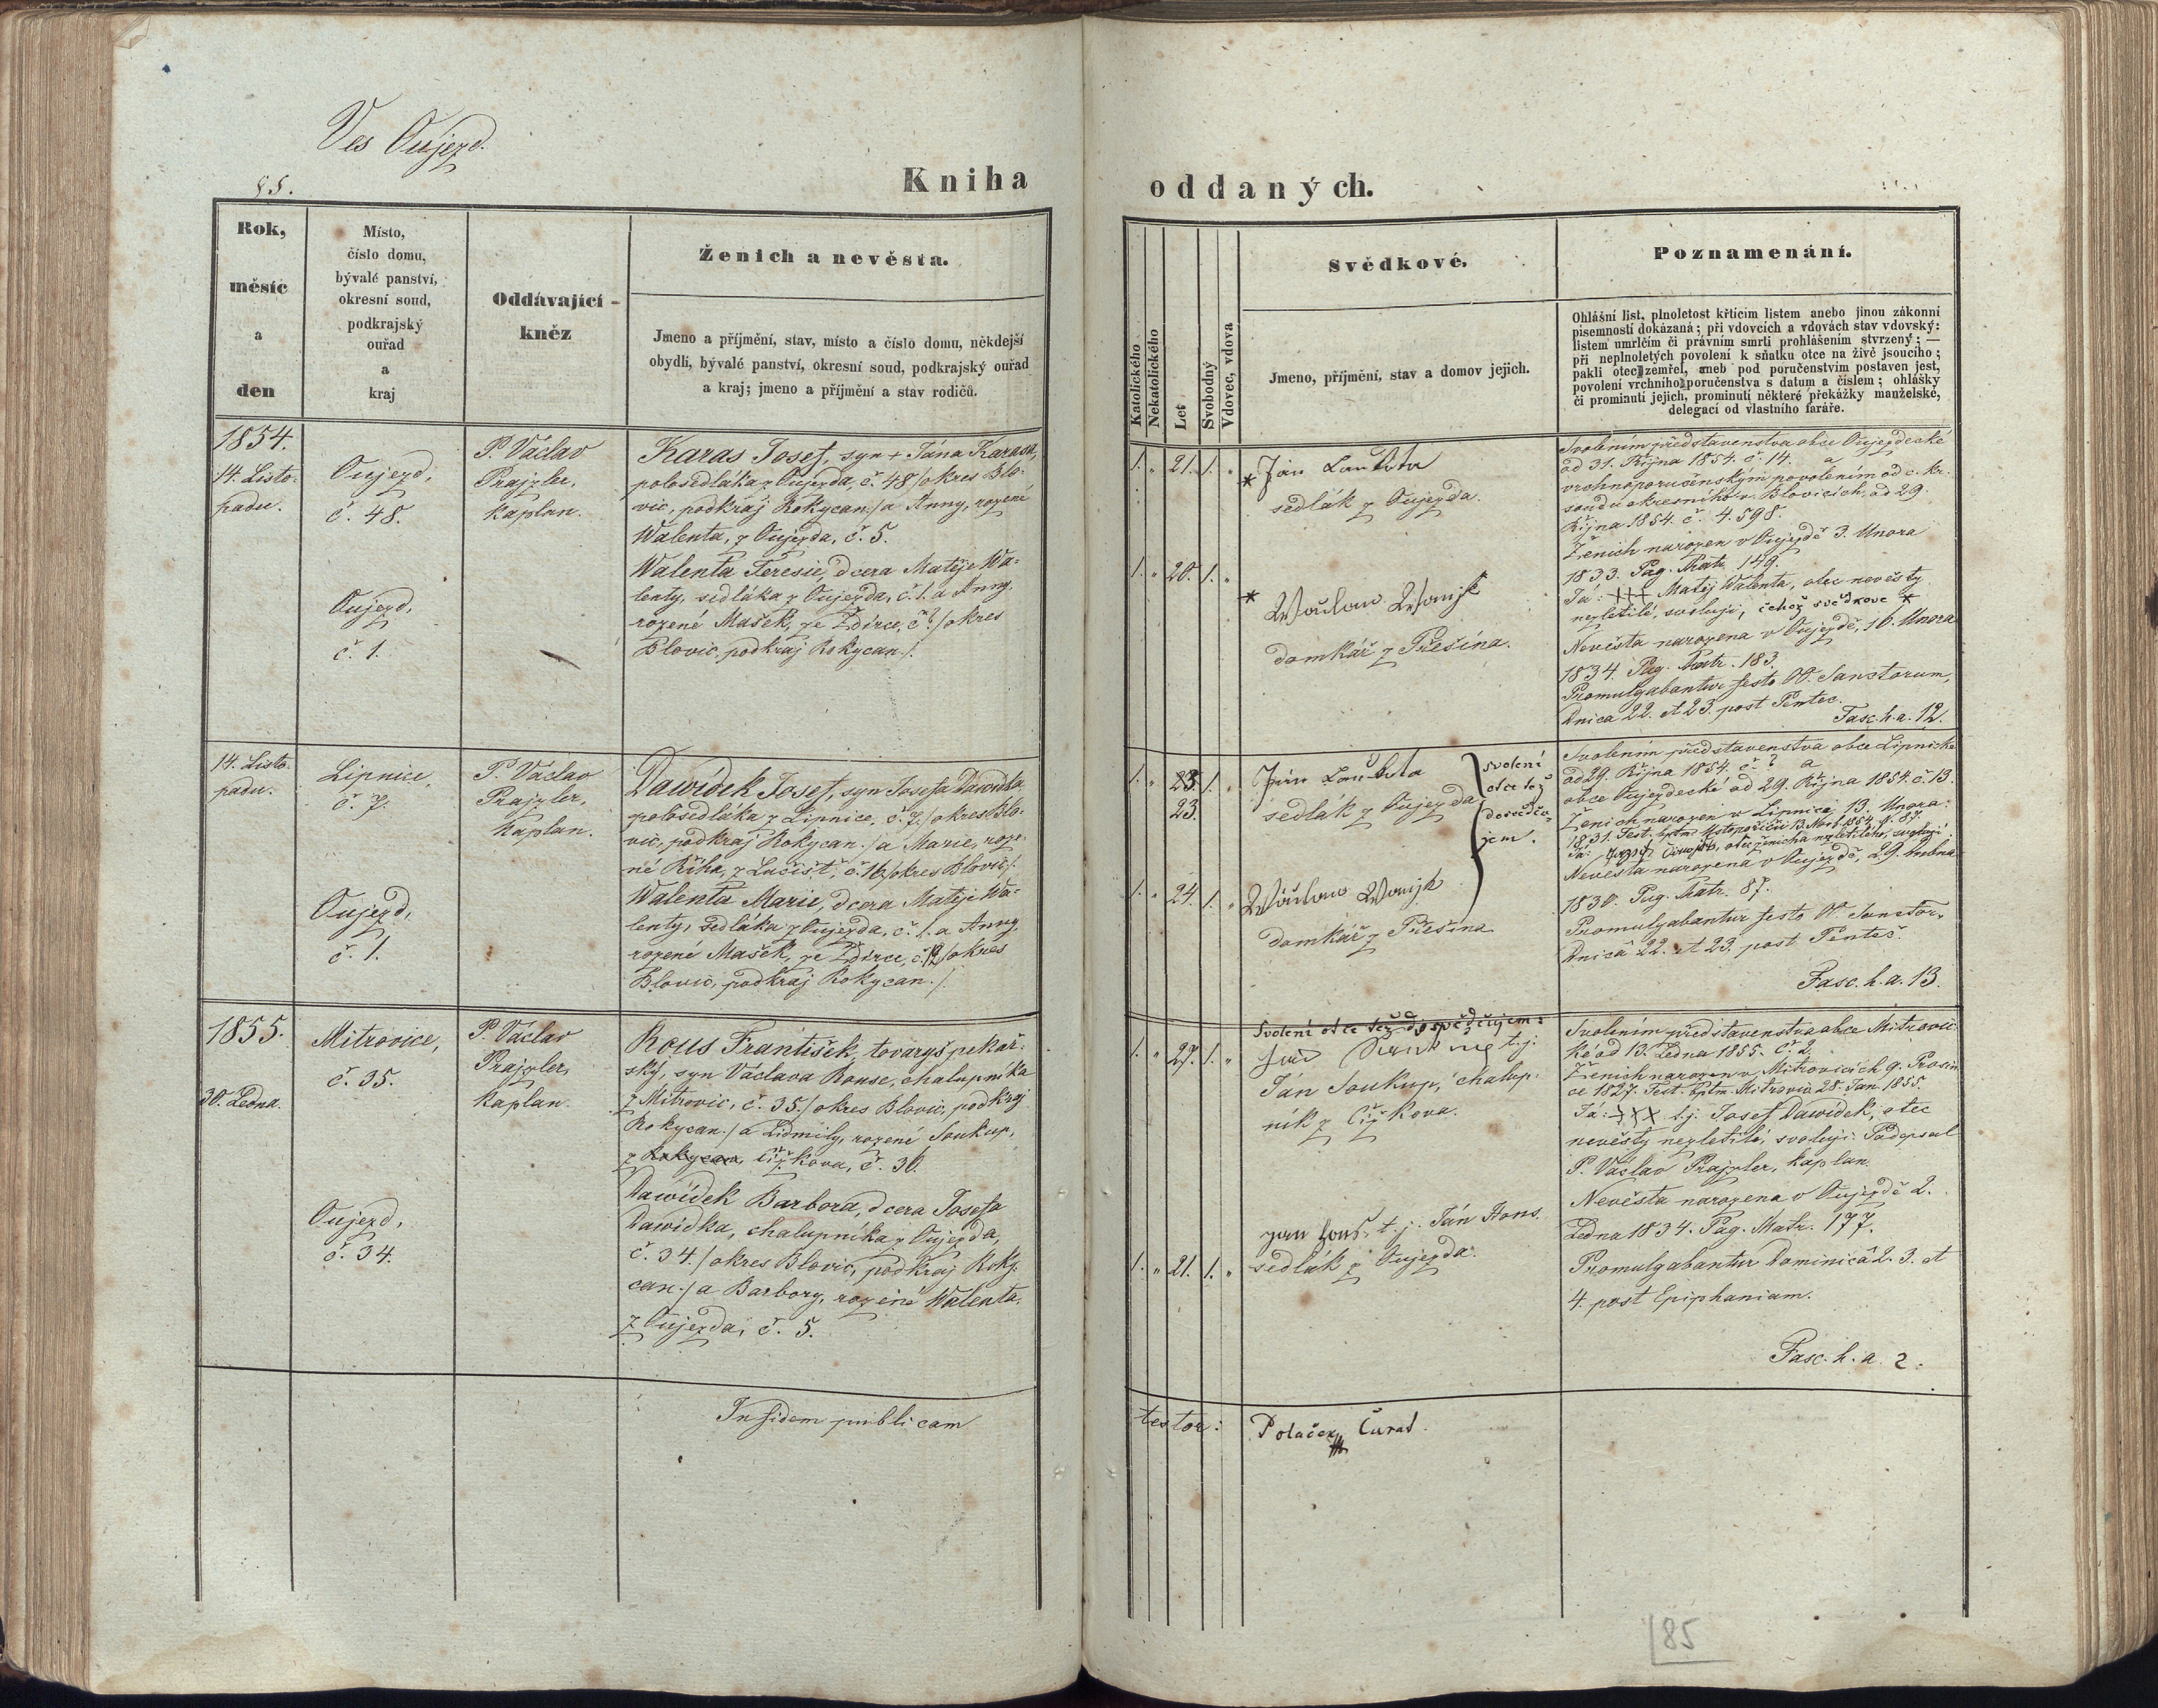 Ves Oujezd.
85.
Kniha
Rok,
měsíc
a
den
Místo,
číslo domu,
bývalé panství,
okresní soud,
podkrajský
ouřad
a
kraj
Oddávající
kněz
Ženich a nevěsta.
Jmeno a příjmění, stav, místo a číslo domu, někdejší
obydlí, bývalé panství, okresní soud, podkrajský ouřad
a kraj; jmeno a příjmění a stav rodičů.
1854.
14. Listo-
padu.
Oujezd,
č. 48.
Oujezd,
č. 1.
P. Václav
Prajzler,
kaplan.
Karas Josef, syn + Jána Karasa,
polosedláka z Oujezda, č. 48 /okres Blo-
vic, podkraj Rokycan./ a Anny, rozené
Walenta, z Oujezda, č. 5.
Walenta Teresie, dcera Matěje Wa-
lenty, sedláka z Oujezda, č. 1. a Anny,
rozené Mašek, ze Ždírce, č.? /okres
Blovic, podkraj Rokycan./.
14. Listo-
padu.
Lipnice,
č. 7.
Oujezd,
č. 1.
P. Václav
Prajzler,
kaplan.
Dawídek Josef, syn Josefa Dawídka
polosedláka z Lipnice, č. 7. /okres Blo-
vic, podkraj Rokycan./ a Marie, roze-
né Říha, z Lučišť, č. 16 /okres Blovic/.
Walenta Marie, dcera Matěje Wa-
lenty, sedláka z Oujezda, č. 1. a Anny,
rozené Mašek, ze Ždírce, č. 12 /okres
Blovic, podkraj Rokycan./
1855.
30. Ledna.
Mitrovice,
č. 35.
Oujezd,
č. 34.
P. Václav
Prajzler,
kaplan.
Rous František, tovaryš pekař-
ský, syn Václava Rouse, chalupníka
z Mitrovic, č. 35. /okres Blovic, podkraj
Rokycan./ a Lidmily, rozené Soukup,
z Rokycan, Čížkova, č. 30.
Dawídek Barbora, dcera Josefa
Dawídka, chalupníka z Oujezda,
č. 34. /okres Blovic, podkraj Roky-
can./ a Barbory, rozené Walenta,
z Oujezda, č. 5.
In fidem publicam
oddaných.
Katolického
Nekatolického
Let
Svobodný
Vdovec, vdova
Svědkové.
Jmeno, příjmění, stav a domov jejich.
Poznamenání.
Ohlášní list, plnoletost křticím listem anebo jinou zákonní
písemností dokázaná; při vdovcích a vdovách stav vdovský:
listem umrlčím či právním smrti prohlášením stvrzený; —
při neplnoletých povolení k sňatku otce na živě jsoucího;
pakli otec zemřel, aneb pod poručenstvím postaven jest,
povolení vrchního poručenstva s datum a číslem; ohlášky
či prominutí jejich, prominutí některé překážky manželské,
delegací od vlastního faráře.
1. " 21. 1. "
* Ján Laukota
sedlák z Oujezda.
1. " 20. 1. "
*
domkář z Přešína.
Svolením představenstva obce Oujezdecké
od 31. Října 1854. č. 14. a
vrchnoporučenským povolením od c. kr.
soudu okresního v Blovicích, od 29.
Října 1854. č. 4.598.
Ženich narozen v Oujezdě 3. Unora
1833. Pag. Matr. 149.
Já: +++ Matěj Walenta, otec nevěsty
nezletilé, svoluji, čehož svědkové *
Nevěsta narozena v Oujezdě, 16. Unora
1834. Pag. Matr. 183.
Promulgabantur festo OO. Sanctorum,
Dnica 22. et 23. post Pentec.
Fasc. h. a. 12.
1. " 23. 1. "
23.
Ján Laukota
sedlák z Oujezda
svolení
otce též
dosvědču-
jem.
1. " 24. 1. "
domkář z Přešína
Svolením představenstva obce Lipnické
od 29. Října 1854. č. ? a
obce Oujezdecké od 29. Října 1854. č. 13.
Ženich narozen v Lipnici, 13. Unora
otec ženicha nezletilého, svoluji.
Nevěsta narozena v Oujezdě, 29. Dubna
1830. Pag. Matr. 87.
Promulgabantur festo OO. Sanctor.
Dnicâ 22. et 23. post Pentec.
Fasc. h. a. 13.
Svolení otce též dosvědčujem:
1. " 27. 1. "
t. j.
Ján Soukup, chalup-
ník z Čížkova.
1. " 21. 1. "
t. j. Ján Hons.
sedlák z Oujezda.
Svolením představenstva obce Mitrovic-
ké od 13. Ledna 1855. č. 2.
Ženich narozen v Mitrovicích 9. Prosin-
ce 1827. Test. bptm. Mitrovic 28. Jan. 1855.
Já: +++ t. j. Josef Dawídek, otec
nevěsty nezletilé, svoluji. Podepsal
P. Václav Prajzler, kaplan.
Nevěsta narozena v Oujezdě 2.
Ledna 1834. Pag. Matr. 177.
Promulgabantur Dominicâ 2. 3. et
4. post Epiphaniam.
Fasc. h. a. 2.
testor:
Polaček Curat.
85